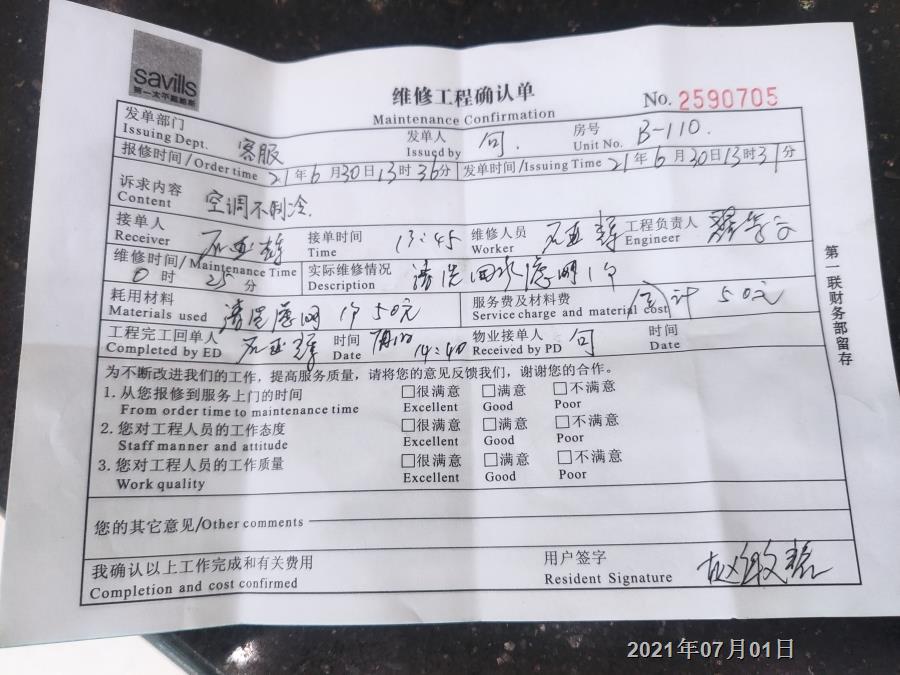 savills
第一太平戴维斯
维修工程确认单
Maintenance Confirmation
No. 2590705
发单部门 客服 发单人 句. 房号 B-110.
Issuing Dept. Issued by Unit No.
报修时间/Order time 21年6月30日13时36分 发单时间/Issuing Time 21年6月30日13时37分
诉求内容 空调不制冷.
Content
接单人 接单时间 13:45 维修人员 工程负责人
Receiver Time Worker Engineer
维修时间/Maintenance Time 实际维修情况 清洗回水滤网1个
0时25分 Description
耗用材料 清洗滤网1个50元 服务费及材料费 合计50元
Materials used Service charge and material cost
工程完工回单人 时间 14:40 物业接单人 句 时间
Completed by ED Date Received by PD Date
为不断改进我们的工作，提高服务质量，请将您的意见反馈我们，谢谢您的合作。
1. 从您报修到服务上门的时间 □很满意 □满意 □不满意
From order time to maintenance time Excellent Good Poor
2. 您对工程人员的工作态度 □很满意 □满意 □不满意
Staff manner and attitude Excellent Good Poor
3. 您对工程人员的工作质量 □很满意 □满意 □不满意
Work quality Excellent Good Poor
您的其它意见/Other comments
我确认以上工作完成和有关费用 用户签字
Completion and cost confirmed Resident Signature
第一联财务部留存
2021年07月01日